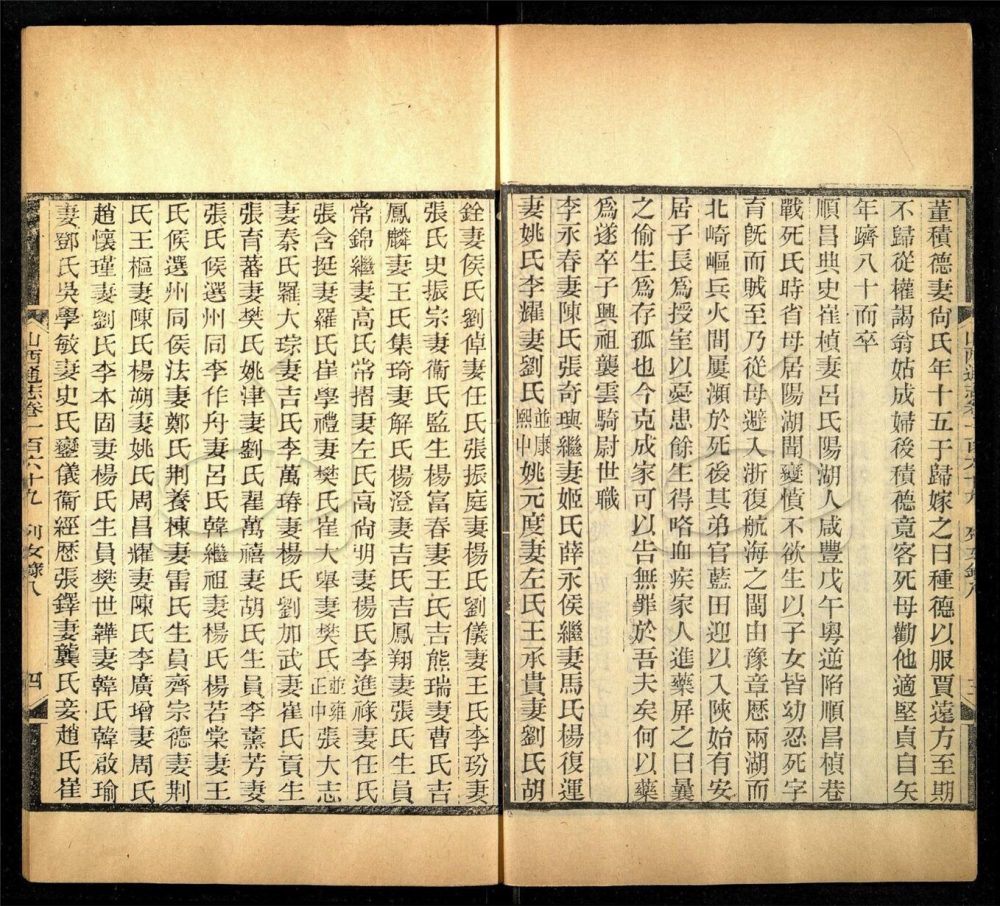 董積德妻尙氏年十五于歸嫁之日種德以服賈遠方至期
不歸從權謁翁姑成婦後積德竟客死母勸他適堅貞自矢
年躋八十而卒
順昌典史崔楨妻呂氏陽湖人咸豐戊午粵逆陷順昌楨巷
戰死氏時省母居陽湖聞變憤不欲生以子女皆幼忍死字
育旣而賊至乃從母避入浙復航海之閩由豫章歷兩湖而
北崎嶇兵火間屢瀕於死後其弟官藍田迎以入陝始有安
居子長爲授室以憂患餘生得咯血疾家人進藥屏之曰曩
之偷生爲存孤也今克成家可以告無罪於吾夫矣何以藥
爲遂卒子興祖襲雲騎尉世職
李永春妻陳氏張奇璵繼妻姬氏薛永侯繼妻馬氏楊復運
妻姚氏李耀妻劉氏並康熙中姚元度妻左氏王承貴妻劉氏胡
銓妻侯氏劉倬妻任氏張振庭妻楊氏劉儀妻王氏李玢妻
張氏史振宗妻衞氏監生楊富春妻王氏吉熊瑞妻曹氏吉
鳳麟妻王氏集琦妻解氏楊澄妻吉氏吉鳳翔妻張氏生員
常錦繼妻高氏常摺妻左氏高尙明妻楊氏李進祿妻任氏
張含挺妻羅氏崔學禮妻樊氏崔大舉妻樊氏並雍正中張大志
妻秦氏羅大琮妻吉氏李萬瑃妻楊氏劉加武妻崔氏貢生
張育蕃妻樊氏姚津妻劉氏翟萬禧妻胡氏生員李薰芳妻
張氏候選州同李作舟妻呂氏韓繼祖妻楊氏楊若棠妻王
氏候選州同侯法妻鄭氏荆養棟妻雷氏生員齊宗德妻荆
氏王樞妻陳氏楊朔妻姚氏周昌耀妻陳氏李廣增妻周氏
趙懷瑾妻劉氏李本固妻楊氏生員樊世韡妻韓氏韓啟瑜
妻鄧氏吳學敏妻史氏鑾儀衞經歷張鐸妻龔氏妾趙氏崔
山西通志卷一百六十九 列女錄八 四